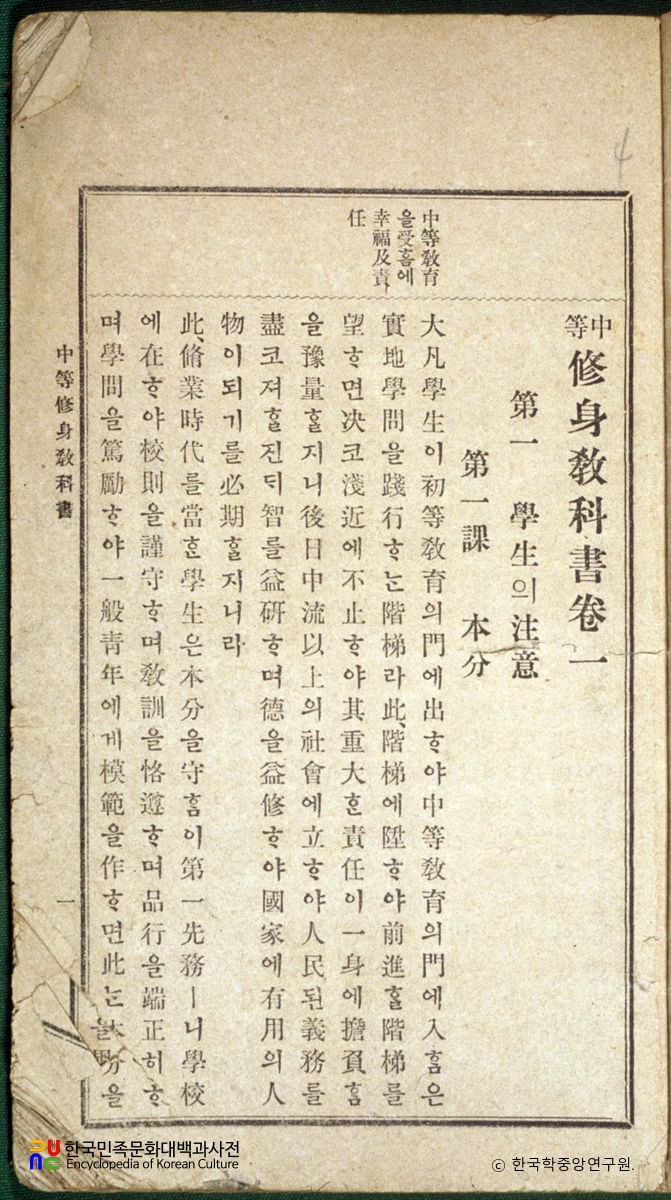 中等 修身敎科書卷一
第一 學生의注意
第一課 本分
中等敎育
을受홈에
幸福及責
任
大凡學生이初等敎育의門에出ᄒᆞ야中等敎育의門에入홈은
實地學問을踐行ᄒᆞᄂᆞᆫ階梯라此、階梯에陞ᄒᆞ야前進ᄒᆞᆯ階梯를
望ᄒᆞ면決코淺近에不止ᄒᆞ야其重大ᄒᆞᆫ責任이一身에擔負홈
을豫量ᄒᆞᆯ지니後日中流以上의社會에立ᄒᆞ야人民된義務를
盡코져ᄒᆞᆯ진ᄃᆡ智를益硏ᄒᆞ며德을益修ᄒᆞ야國家에有用의人
物이되기를必期ᄒᆞᆯ지니라
此、脩業時代를當ᄒᆞᆫ學生은本分을守홈이第一先務ㅣ니學校
에在ᄒᆞ야校則을謹守ᄒᆞ며敎訓을恪遵ᄒᆞ며品行을端正히ᄒᆞ
며學問을篤勵ᄒᆞ야一般靑年에게模範을作ᄒᆞ면此ᄂᆞᆫ本分을
中等修身敎科書
一
4
한국민족문화대백과사전
Encyclopedia of Korean Culture
ⓒ 한국학중앙연구원.